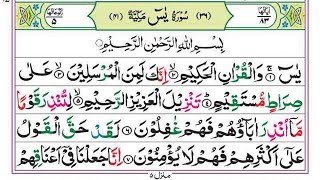 سُوْرَةُ يٰسٓ مَكِّيَّةٌ
بِسْمِ اللّٰهِ الرَّحْمٰنِ الرَّحِيْمِ
يٰسٓ ۚ وَالْقُرْاٰنِ الْحَكِيْمِ ۙ اِنَّكَ لَمِنَ الْمُرْسَلِيْنَ ۙ عَلٰى
صِرَاطٍ مُّسْتَقِيْمٍ ؕ تَنْزِيْلَ الْعَزِيْزِ الرَّحِيْمِ ۙ لِتُنْذِرَ قَوْمًا
مَّاۤ اُنْذِرَ اٰبَآؤُهُمْ فَهُمْ غٰفِلُوْنَ لَقَدْ حَقَّ الْقَوْلُ
عَلٰۤى اَكْثَرِهِمْ فَهُمْ لَا يُؤْمِنُوْنَ اِنَّا جَعَلْنَا فِيْۤ اَعْنَاقِهِمْ
منزل ٥